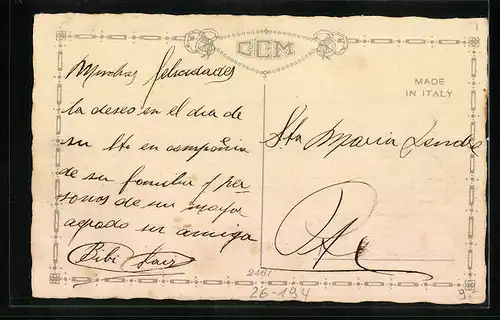 CCM
MADE
IN ITALY
Muchas felicidades
la deseo en el dia de
su Sto en compañia
de su familia y per
sonas de su mayor
agrado su amiga
Bibi
Sta Maria
2261
26-194